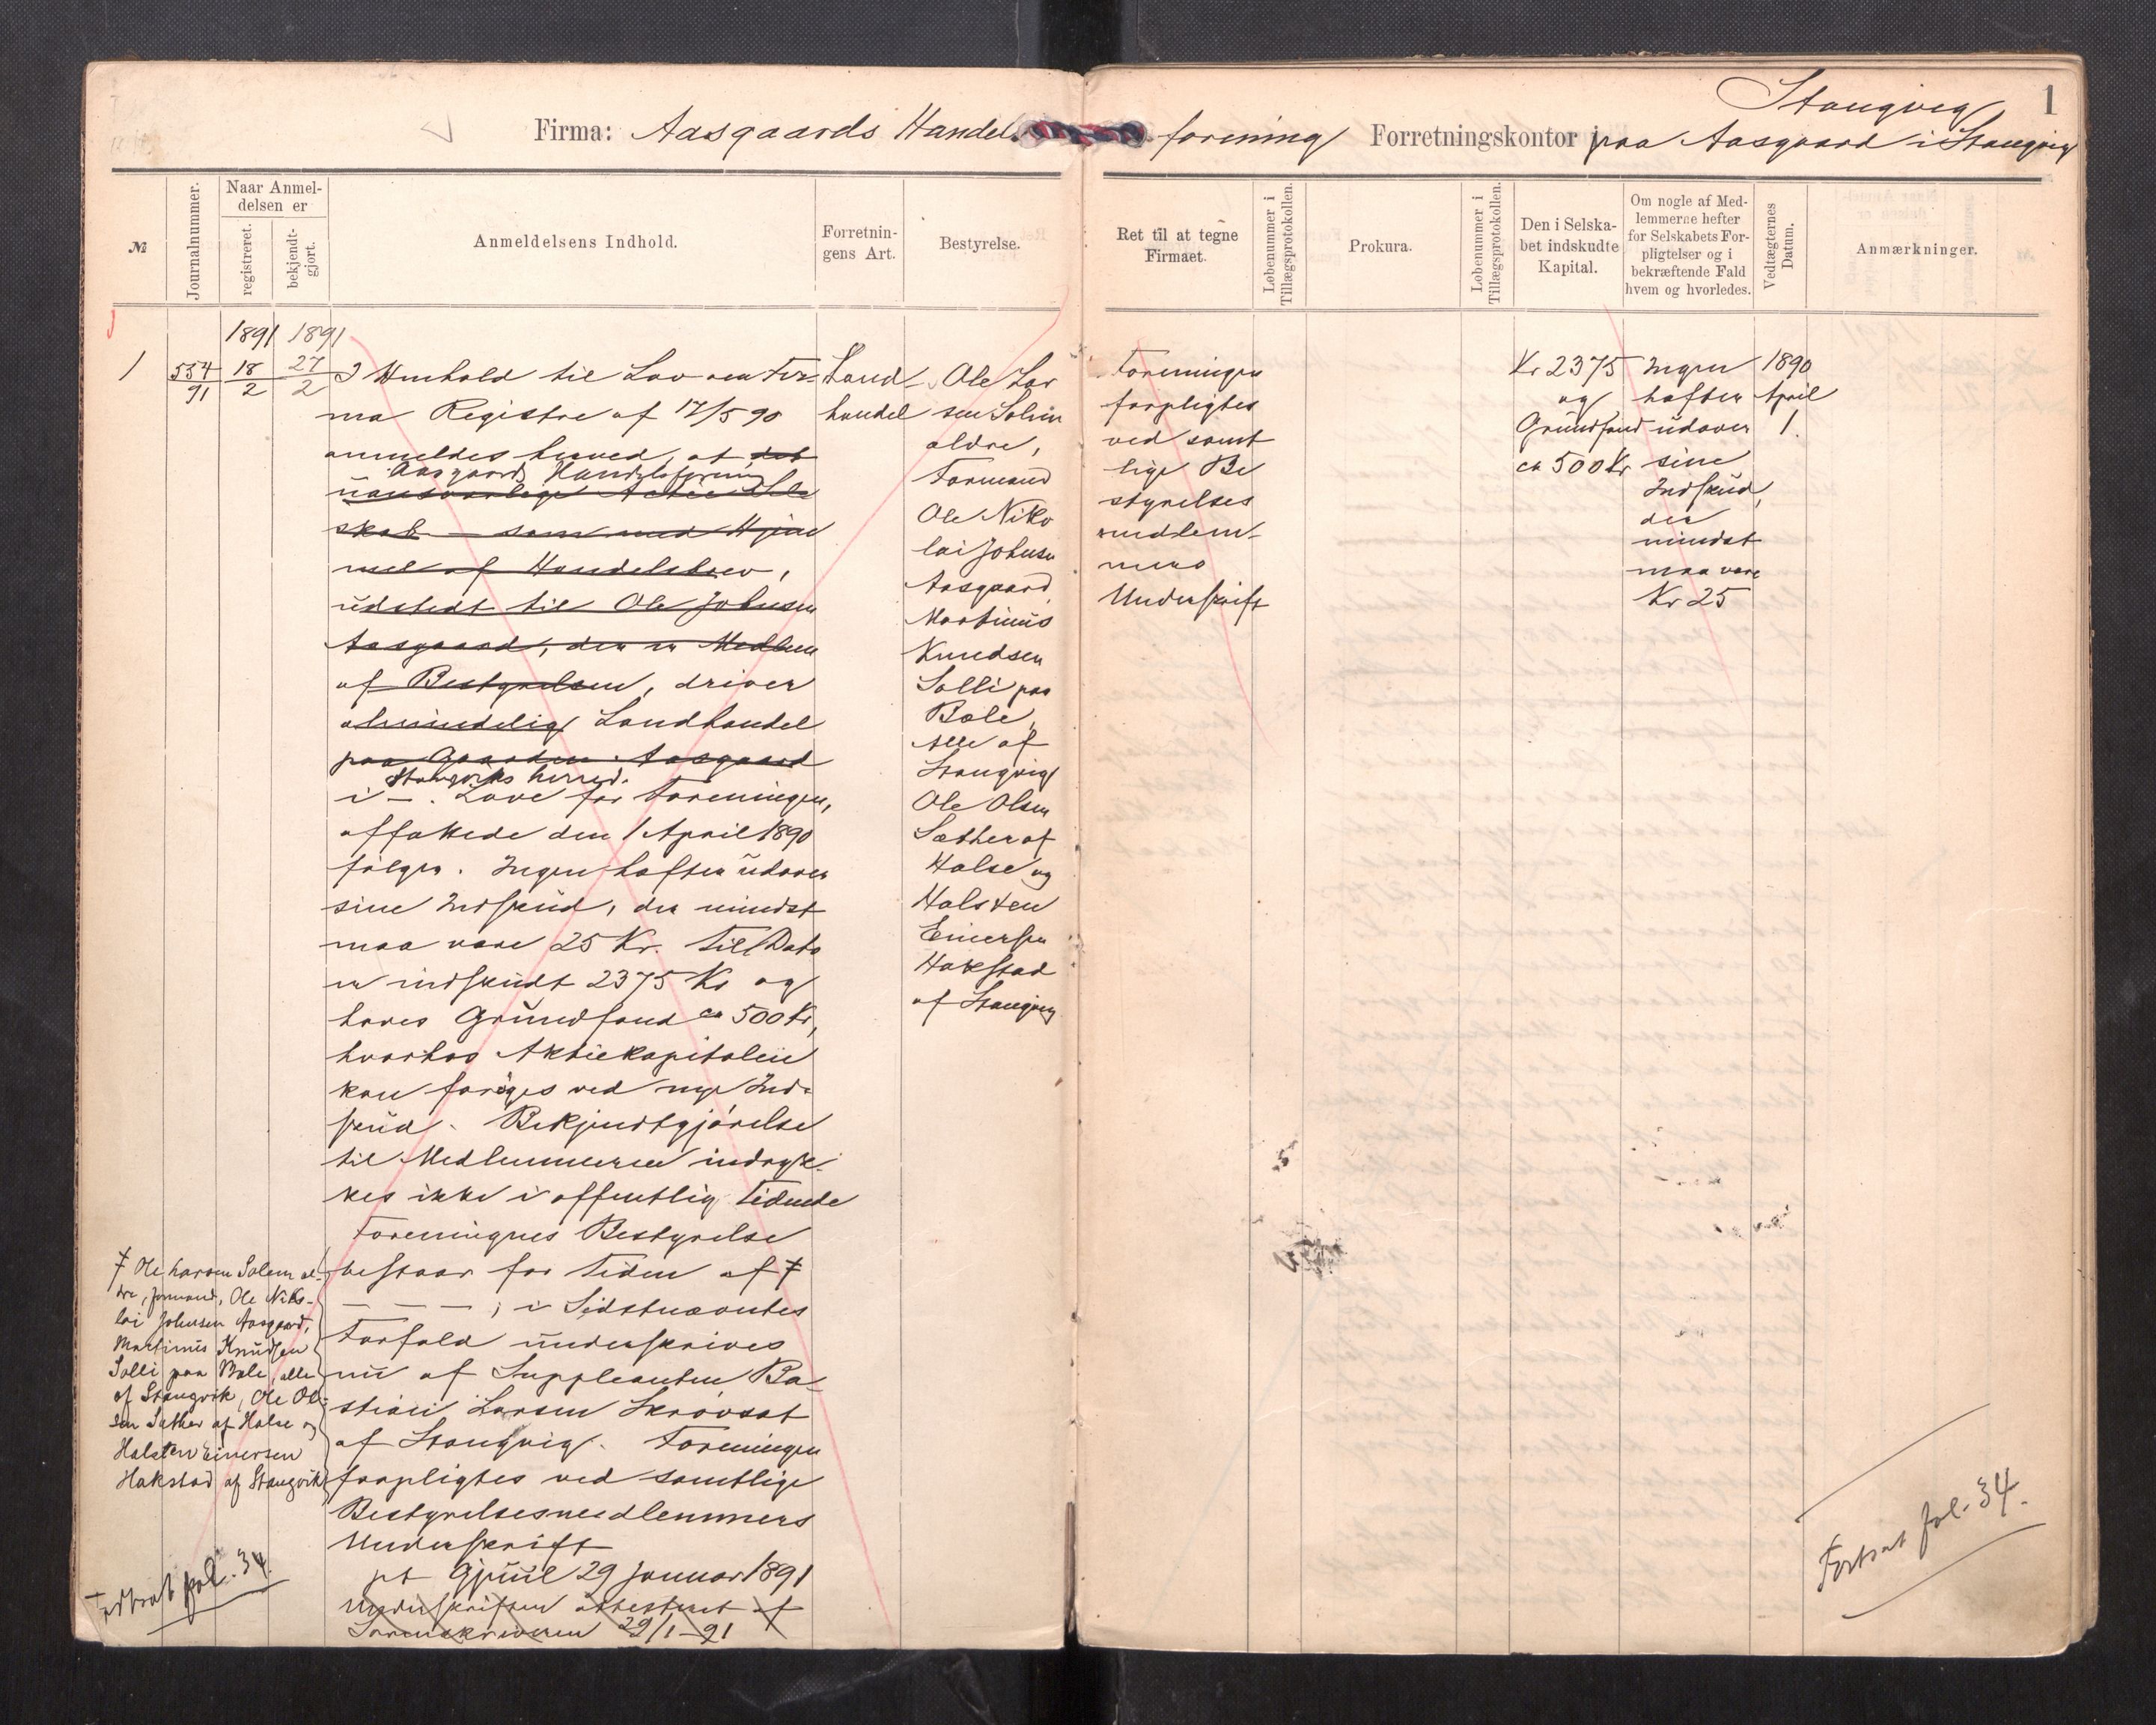 Stangvig
1
Firma: Aasgaards Handels forening Forretningskontor i paa Aasgaard i Stangvig
№
Journalnummer.
Naar Anmel-
delsen er
registreret.
bekjendt-
gjort.
Anmeldelsens Indhold.
Forretnin-
gens Art.
Bestyrelse.
Ret til at tegne
Firmaet.
Løbenummer i
Tillægsprotokollen.
Prokura.
Løbenummer i
Tillægsprotokollen.
Den i Selska-
bet indskudte
Kapital.
Om nogle af Med-
lemmerne hefter
for Selskabets For-
pligtelser og i
bekræftende Fald
hvem og hvorledes.
Vedtægternes
Datum.
Anmærkninger.
1891 1891
1
554
91
18
2
27
2
I Henhold til Lov om Fir-
ma Registre af 17/5 90
anmeldes herved, at det
Aasgaards Handelsforening
uansvarlige Actiesel
skab – som med Hjem
mel af Handelsbrev,
udstedt til Ole Johnsen
Aasgaard, der er Medlem
af Bestyrelsen, driver
almindelig Landhandel
paa Gaarden Aasgaard
Stangviks herred.
i –. Love for Foreningen,
affattede den 1 April 1890
følger. Ingen hefter udover
sine Indskud, der mindst
maa være 25 Kr. Til Dato
er indskudt 2375 Kr og
haves Grundfond ca 500 Kr,
hvorhos Aktiekapitalen
kan forøges ved nye Ind-
skud. Bekjendtgjørelse
til Medlemmerne indryk-
kes ikke i offentlig Tidende
Foreningens Bestyrelse
bestaar for Tiden af ‡
– – – ; i Sidstnævntes
Forfald underskrives
nu af Suppleanten Ba-
stian Larsen Skrøvset
af Stangvig. Foreningen
forpligtes ved samtlige
Bestyrelsesmedlemmers
Underskrift
pt Gjúul 29 Januar 1891
Underskriften attesteret af
Sorenskriveren 29/1–91
‡ Ole Larsen Solem æl-
dre, formand, Ole Niko-
lai Johnsen Aasgaard,
Martinus Knudsen
Solli paa Bøle, alle
af Stangvik, Ole Ol-
sen Sæther af Halse og
Halsten Einersen
Hakstad af Stangvik
Fortsat fol. 34
Land
handel
Ole Lar
sen Solem
ældre,
Formand
Ole Niko
lai Johnsen
Aasgaard,
Martinus
Knudsen
Solli paa
Bøle,
Alle af
Stangvig
Ole Olsen
Sæther af
Halse og
Halsten
Einersen
Hakstad
af Stangvig
Foreningen
forpligtes
ved samt
lige Be
styrelses
medlem-
mers
Underskrift
Kr 2375
og
Grundfond
ca 500 Kr
Ingen
hefter
udover
sine
Indskud,
der
mindst
maa være
Kr 25
1890
April
1.
Fortsat fol. 34.